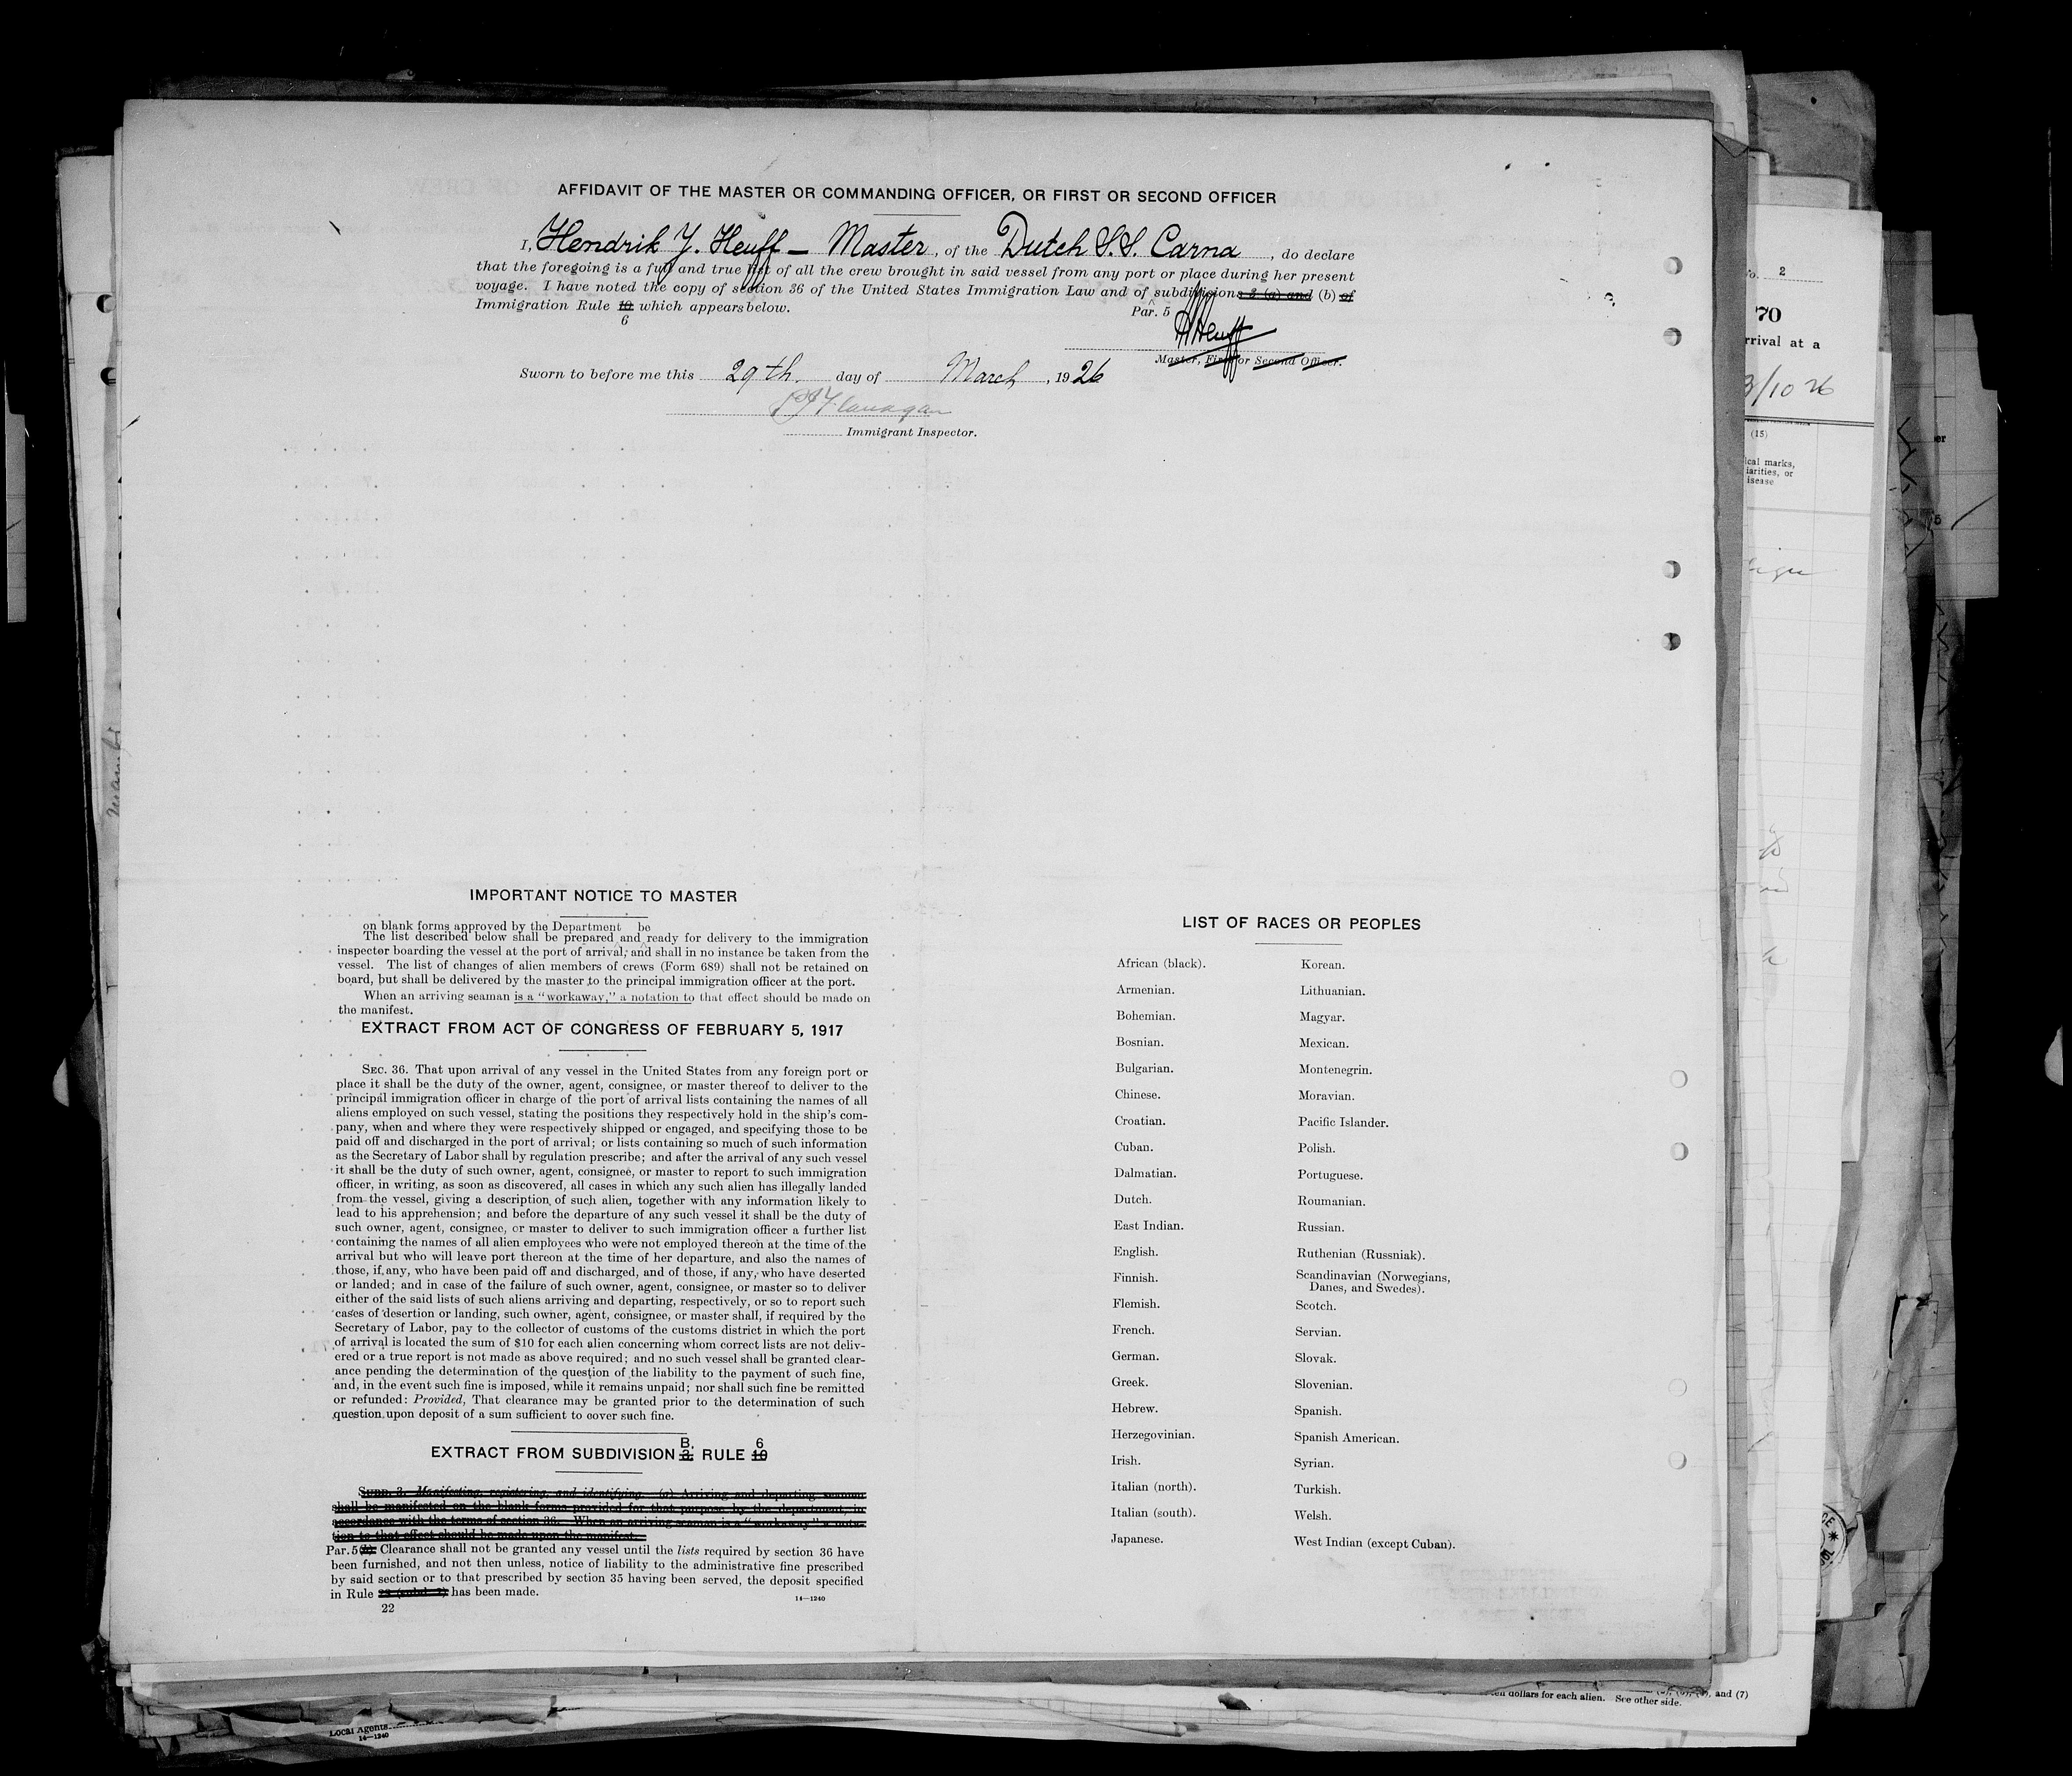 AFFIDAVIT OF THE MASTER OR COMMANDING OFFICER, OR FIRST OR SECOND OFFICER
I, Hendrik Y. Heuff — Master, of the Dutch S.S. Carna, do declare
that the foregoing is a full and true list of all the crew brought in said vessel from any port or place during her present
voyage. I have noted the copy of section 36 of the United States Immigration Law and of subdivisions 3 (a) and (b) of
Par. 5
Immigration Rule 10 which appears below.
6
HHeuff
Master, First or Second Officer.
Sworn to before me this 29th. day of March, 1926
PJ Flanagan
Immigrant Inspector.
IMPORTANT NOTICE TO MASTER
on blank forms approved by the Department be
The list described below shall be prepared and ready for delivery to the immigration
inspector boarding the vessel at the port of arrival, and shall in no instance be taken from the
vessel. The list of changes of alien members of crews (Form 689) shall not be retained on
board, but shall be delivered by the master to the principal immigration officer at the port.
When an arriving seaman is a "workaway," a notation to that effect should be made on
the manifest.
EXTRACT FROM ACT OF CONGRESS OF FEBRUARY 5, 1917
SEC. 36. That upon arrival of any vessel in the United States from any foreign port or
place it shall be the duty of the owner, agent, consignee, or master thereof to deliver to the
principal immigration officer in charge of the port of arrival lists containing the names of all
aliens employed on such vessel, stating the positions they respectively hold in the ship's com-
pany, when and where they were respectively shipped or engaged, and specifying those to be
paid off and discharged in the port of arrival; or lists containing so much of such information
as the Secretary of Labor shall by regulation prescribe; and after the arrival of any such vessel
it shall be the duty of such owner, agent, consignee, or master to report to such immigration
officer, in writing, as soon as discovered, all cases in which any such alien has illegally landed
from the vessel, giving a description of such alien, together with any information likely to
lead to his apprehension; and before the departure of any such vessel it shall be the duty of
such owner, agent, consignee, or master to deliver to such immigration officer a further list
containing the names of all alien employees who were not employed thereon at the time of the
arrival but who will leave port thereon at the time of her departure, and also the names of
those, if any, who have been paid off and discharged, and of those, if any, who have deserted
or landed; and in case of the failure of such owner, agent, consignee, or master so to deliver
either of the said lists of such aliens arriving and departing, respectively, or so to report such
cases of desertion or landing, such owner, agent, consignee, or master shall, if required by the
Secretary of Labor, pay to the collector of customs of the customs district in which the port
of arrival is located the sum of $10 for each alien concerning whom correct lists are not deliv-
ered or a true report is not made as above required; and no such vessel shall be granted clear-
ance pending the determination of the question of the liability to the payment of such fine,
and, in the event such fine is imposed, while it remains unpaid; nor shall such fine be remitted
or refunded: Provided, That clearance may be granted prior to the determination of such
question upon deposit of a sum sufficient to cover such fine.
B. 6
EXTRACT FROM SUBDIVISION 3, RULE 10
SUBD. 3. Manifesting, registering, and identifying (a) Arriving and departing seamen
shall be manifested on the blank forms provided for that purpose by the department, in
accordance with the terms of section 36. When an arriving seaman is a "workaway" a nota-
tion to that effect should be made upon the manifest.
Par. 5 (b) Clearance shall not be granted any vessel until the lists required by section 36 have
been furnished, and not then unless, notice of liability to the administrative fine prescribed
by said section or to that prescribed by section 35 having been served, the deposit specified
in Rule has been made.
22
14—1240
LIST OF RACES OR PEOPLES
African (black).
Armenian.
Bohemian.
Bosnian.
Bulgarian.
Chinese.
Croatian.
Cuban.
Dalmatian.
Dutch.
East Indian.
English.
Finnish.
Flemish.
French.
German.
Greek.
Hebrew.
Herzegovinian.
Irish.
Italian (north).
Italian (south).
Japanese.
Korean.
Lithuanian.
Magyar.
Mexican.
Montenegrin.
Moravian.
Pacific Islander.
Polish.
Portuguese.
Roumanian.
Russian.
Ruthenian (Russniak).
Scandinavian (Norwegians,
Danes, and Swedes).
Scotch.
Servian.
Slovak.
Slovenian.
Spanish.
Spanish American.
Syrian.
Turkish.
Welsh.
West Indian (except Cuban).
2
70
rrival at a
3/10 26
(15)
ical marks,
iarities, or
isease
dollars for each alien. See other side.
and (7)
Local Agents
14—1240